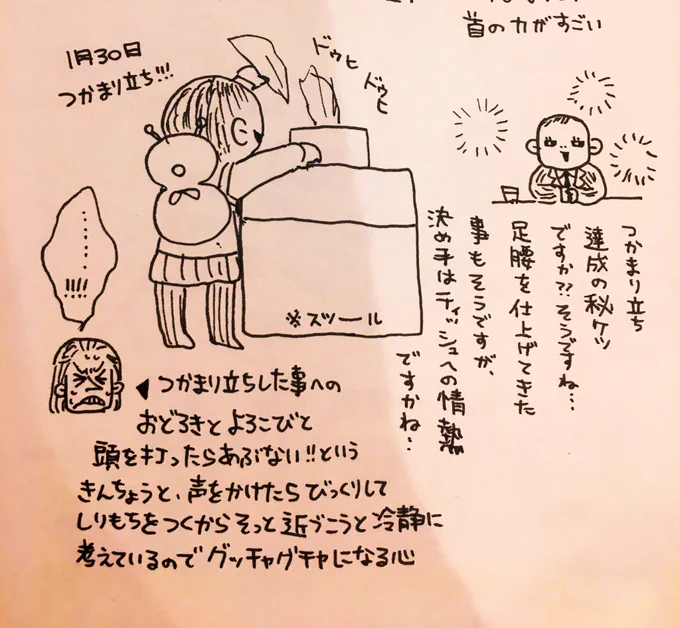 首の力がすごい
1月30日
つかまり立ち!!!
ドゥヒ ドゥヒ
つかまり立ち
達成の秘ケツ
ですか??そうですね…
足腰を仕上げてきた
事もそうですが、
決め手はティッシュへの情熱
ですかね…
※スツール
……!!!!
◀つかまり立ちした事への
おどろきとよろこびと
頭を打ったらあぶない!!という
きんちょうと、声をかけたらびっくりして
しりもちをつくからそっと近づこうと冷静に
考えているのでグッチャグチャになる心